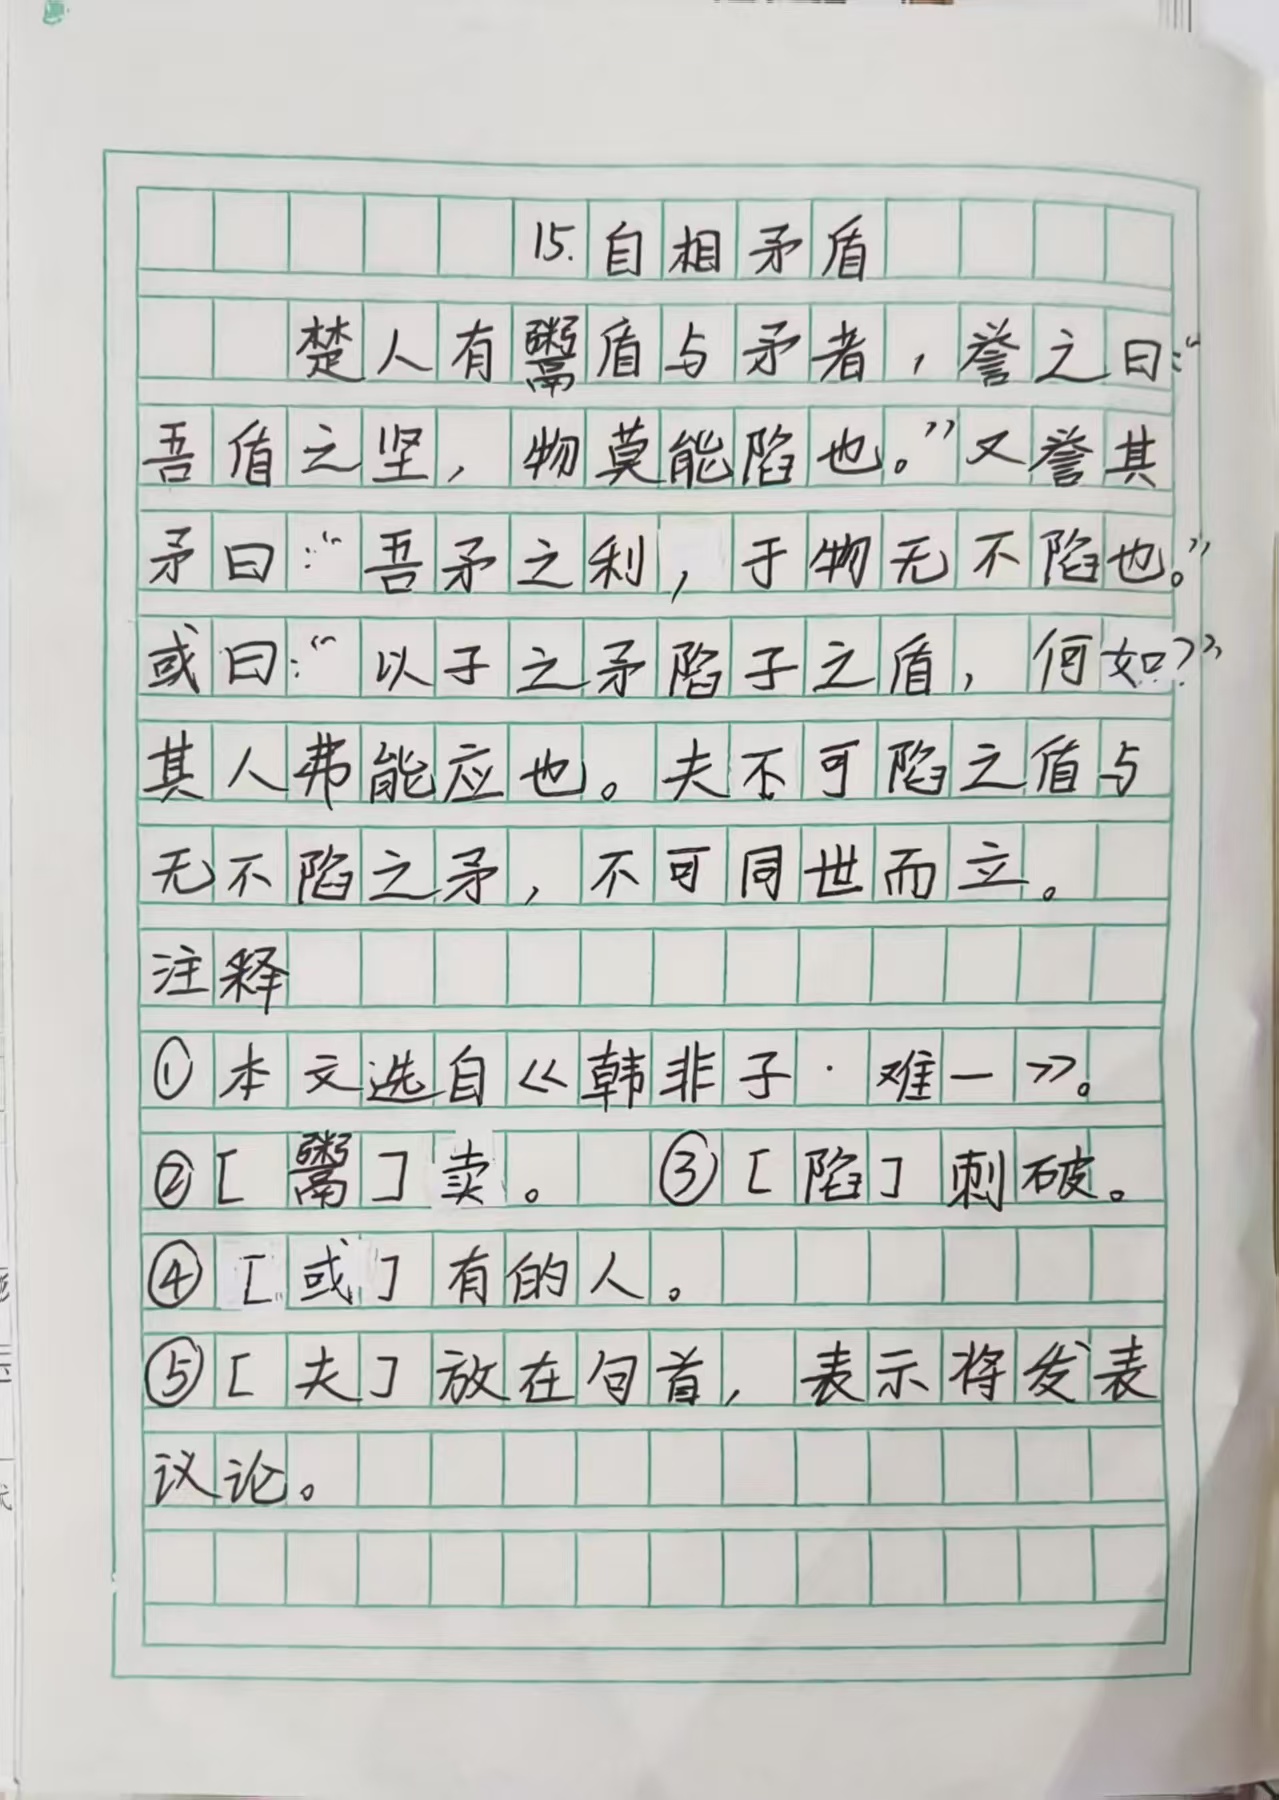 15.自相矛盾
楚人有鬻盾与矛者，誉之曰：“
吾盾之坚，物莫能陷也。”又誉其
矛曰：“吾矛之利，于物无不陷也。”
或曰：“以子之矛陷子之盾，何如？”
其人弗能应也。夫不可陷之盾与
无不陷之矛，不可同世而立。
注释
①本文选自《韩非子·难一》。
②[鬻]卖。 ③[陷]刺破。
④[或]有的人。
⑤[夫]放在句首，表示将发表
议论。